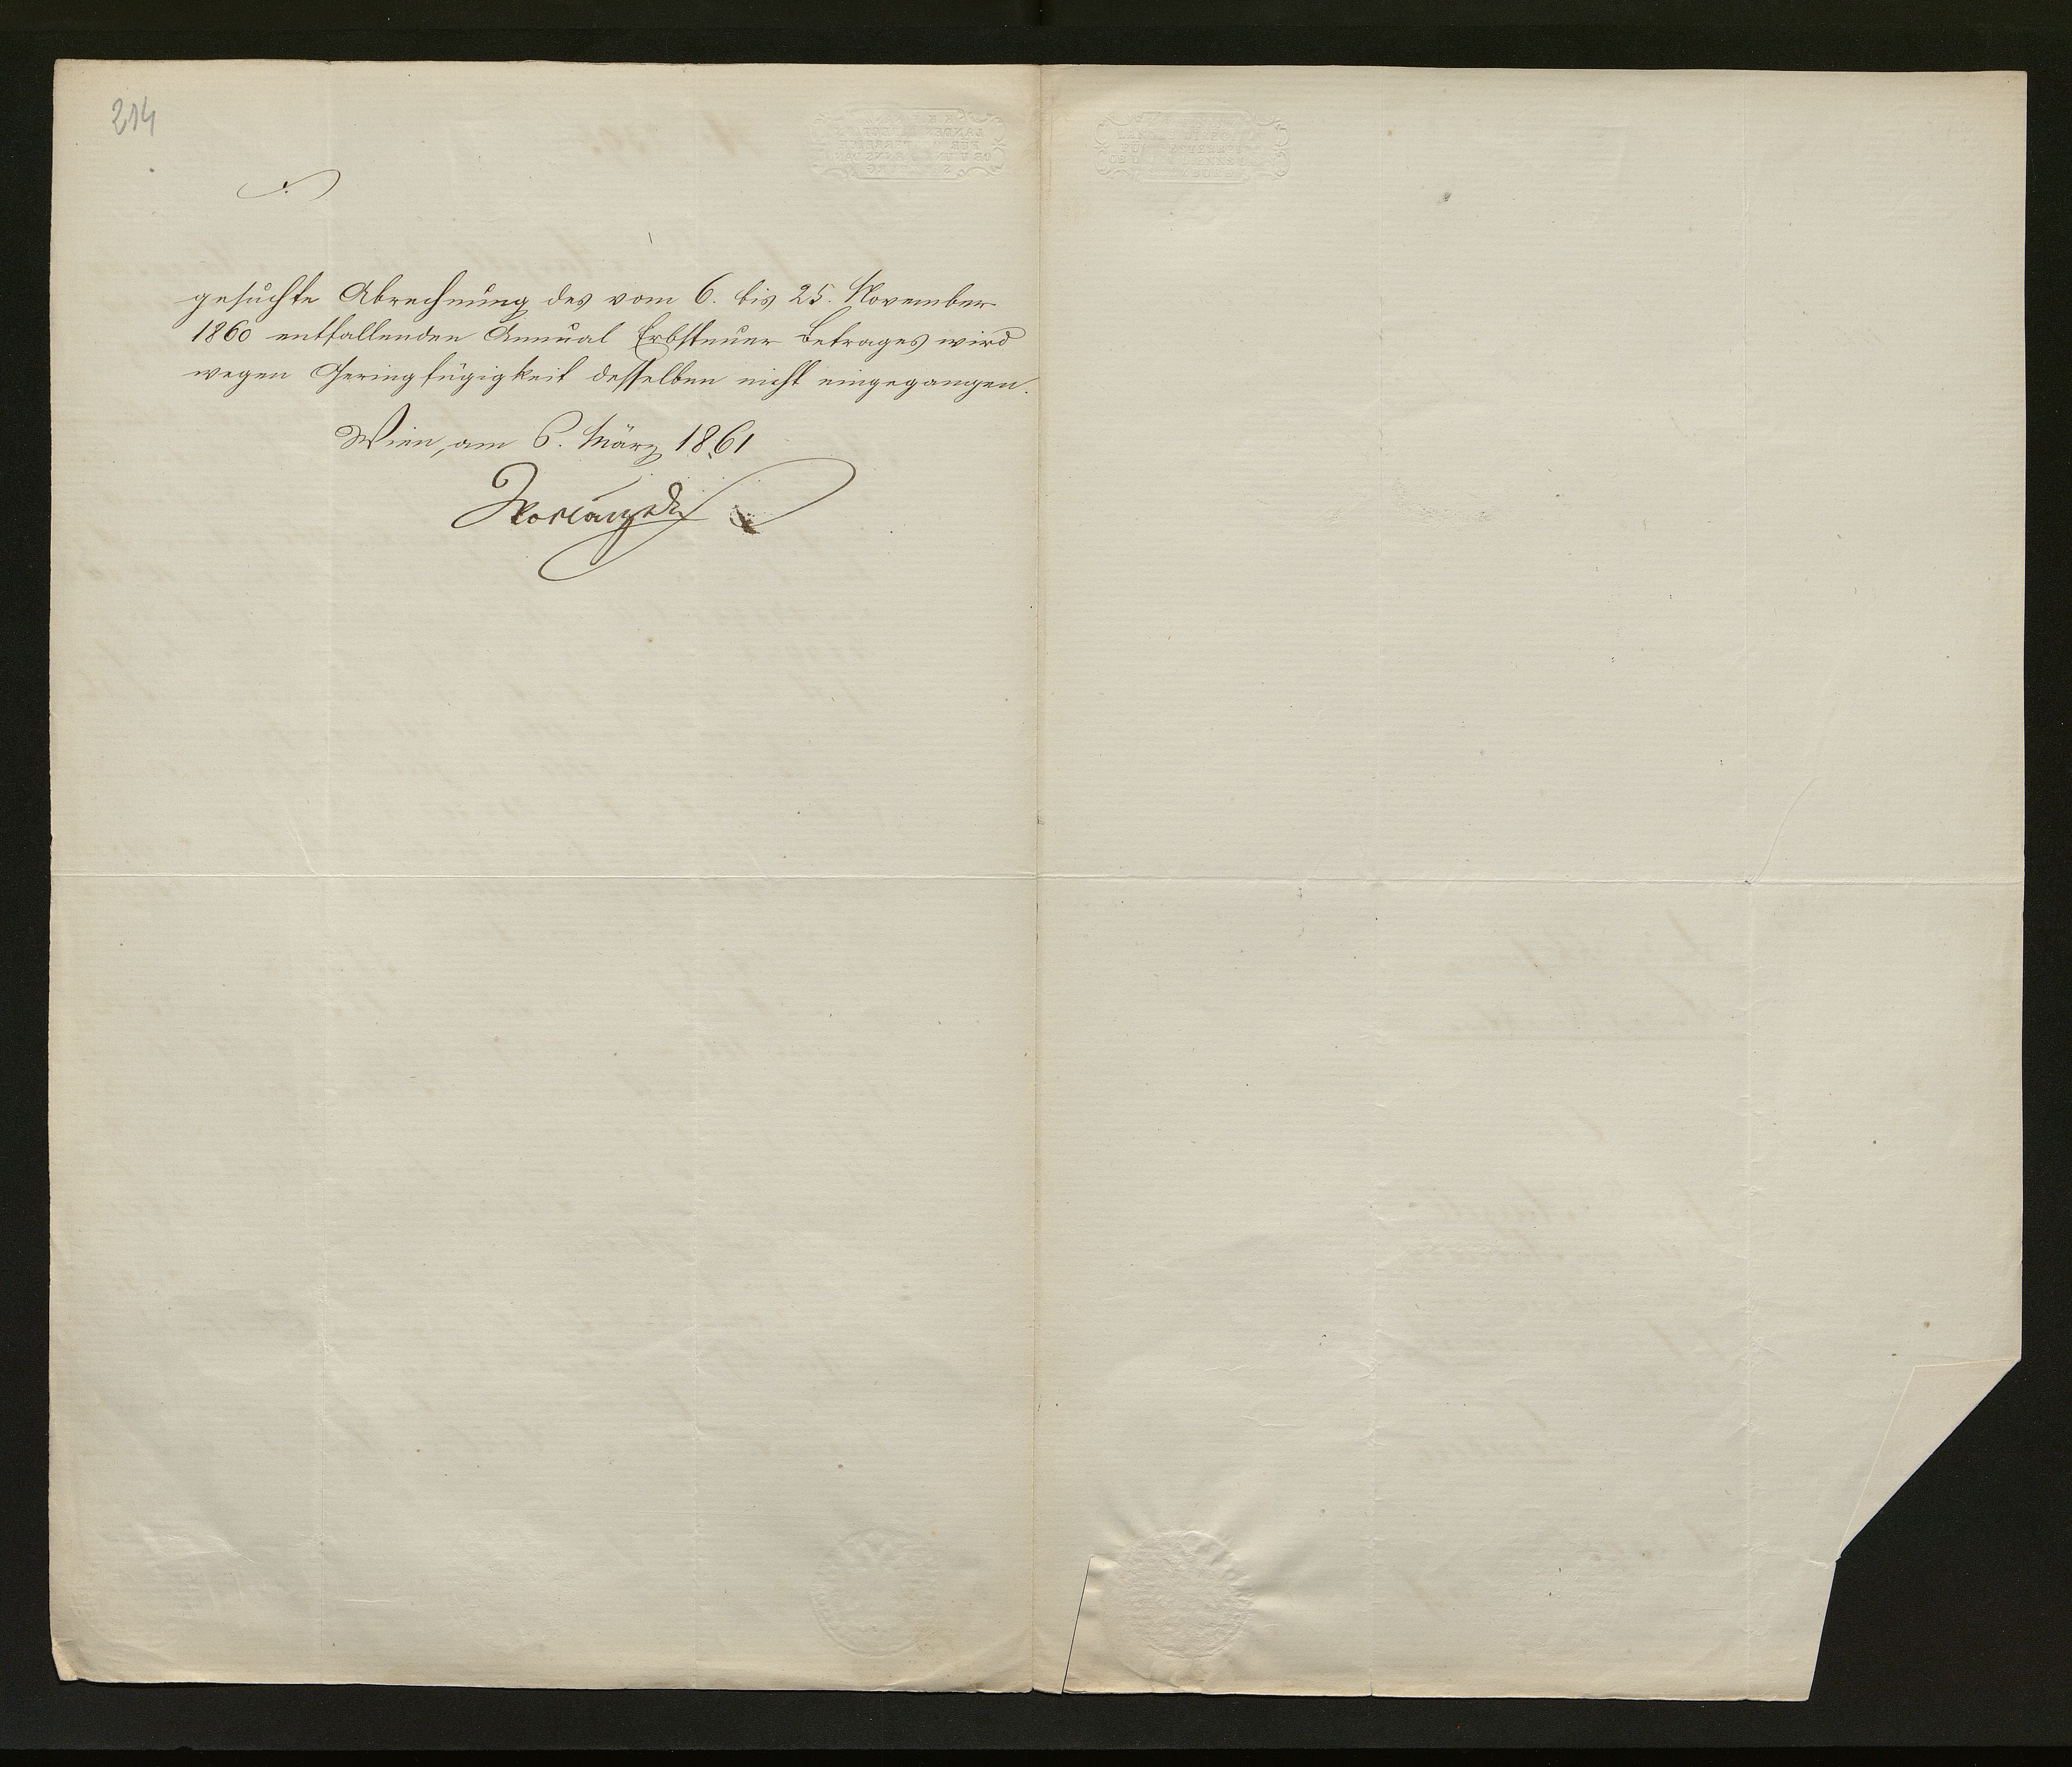 214
gesuchte Abrechnung des vom 6. bis 25. November
1860 entfallenden Annual Erbsteuer Betrages wird
wegen Geringfügigkeit desselben nicht eingegangen.
Wien, am 6. März 1861